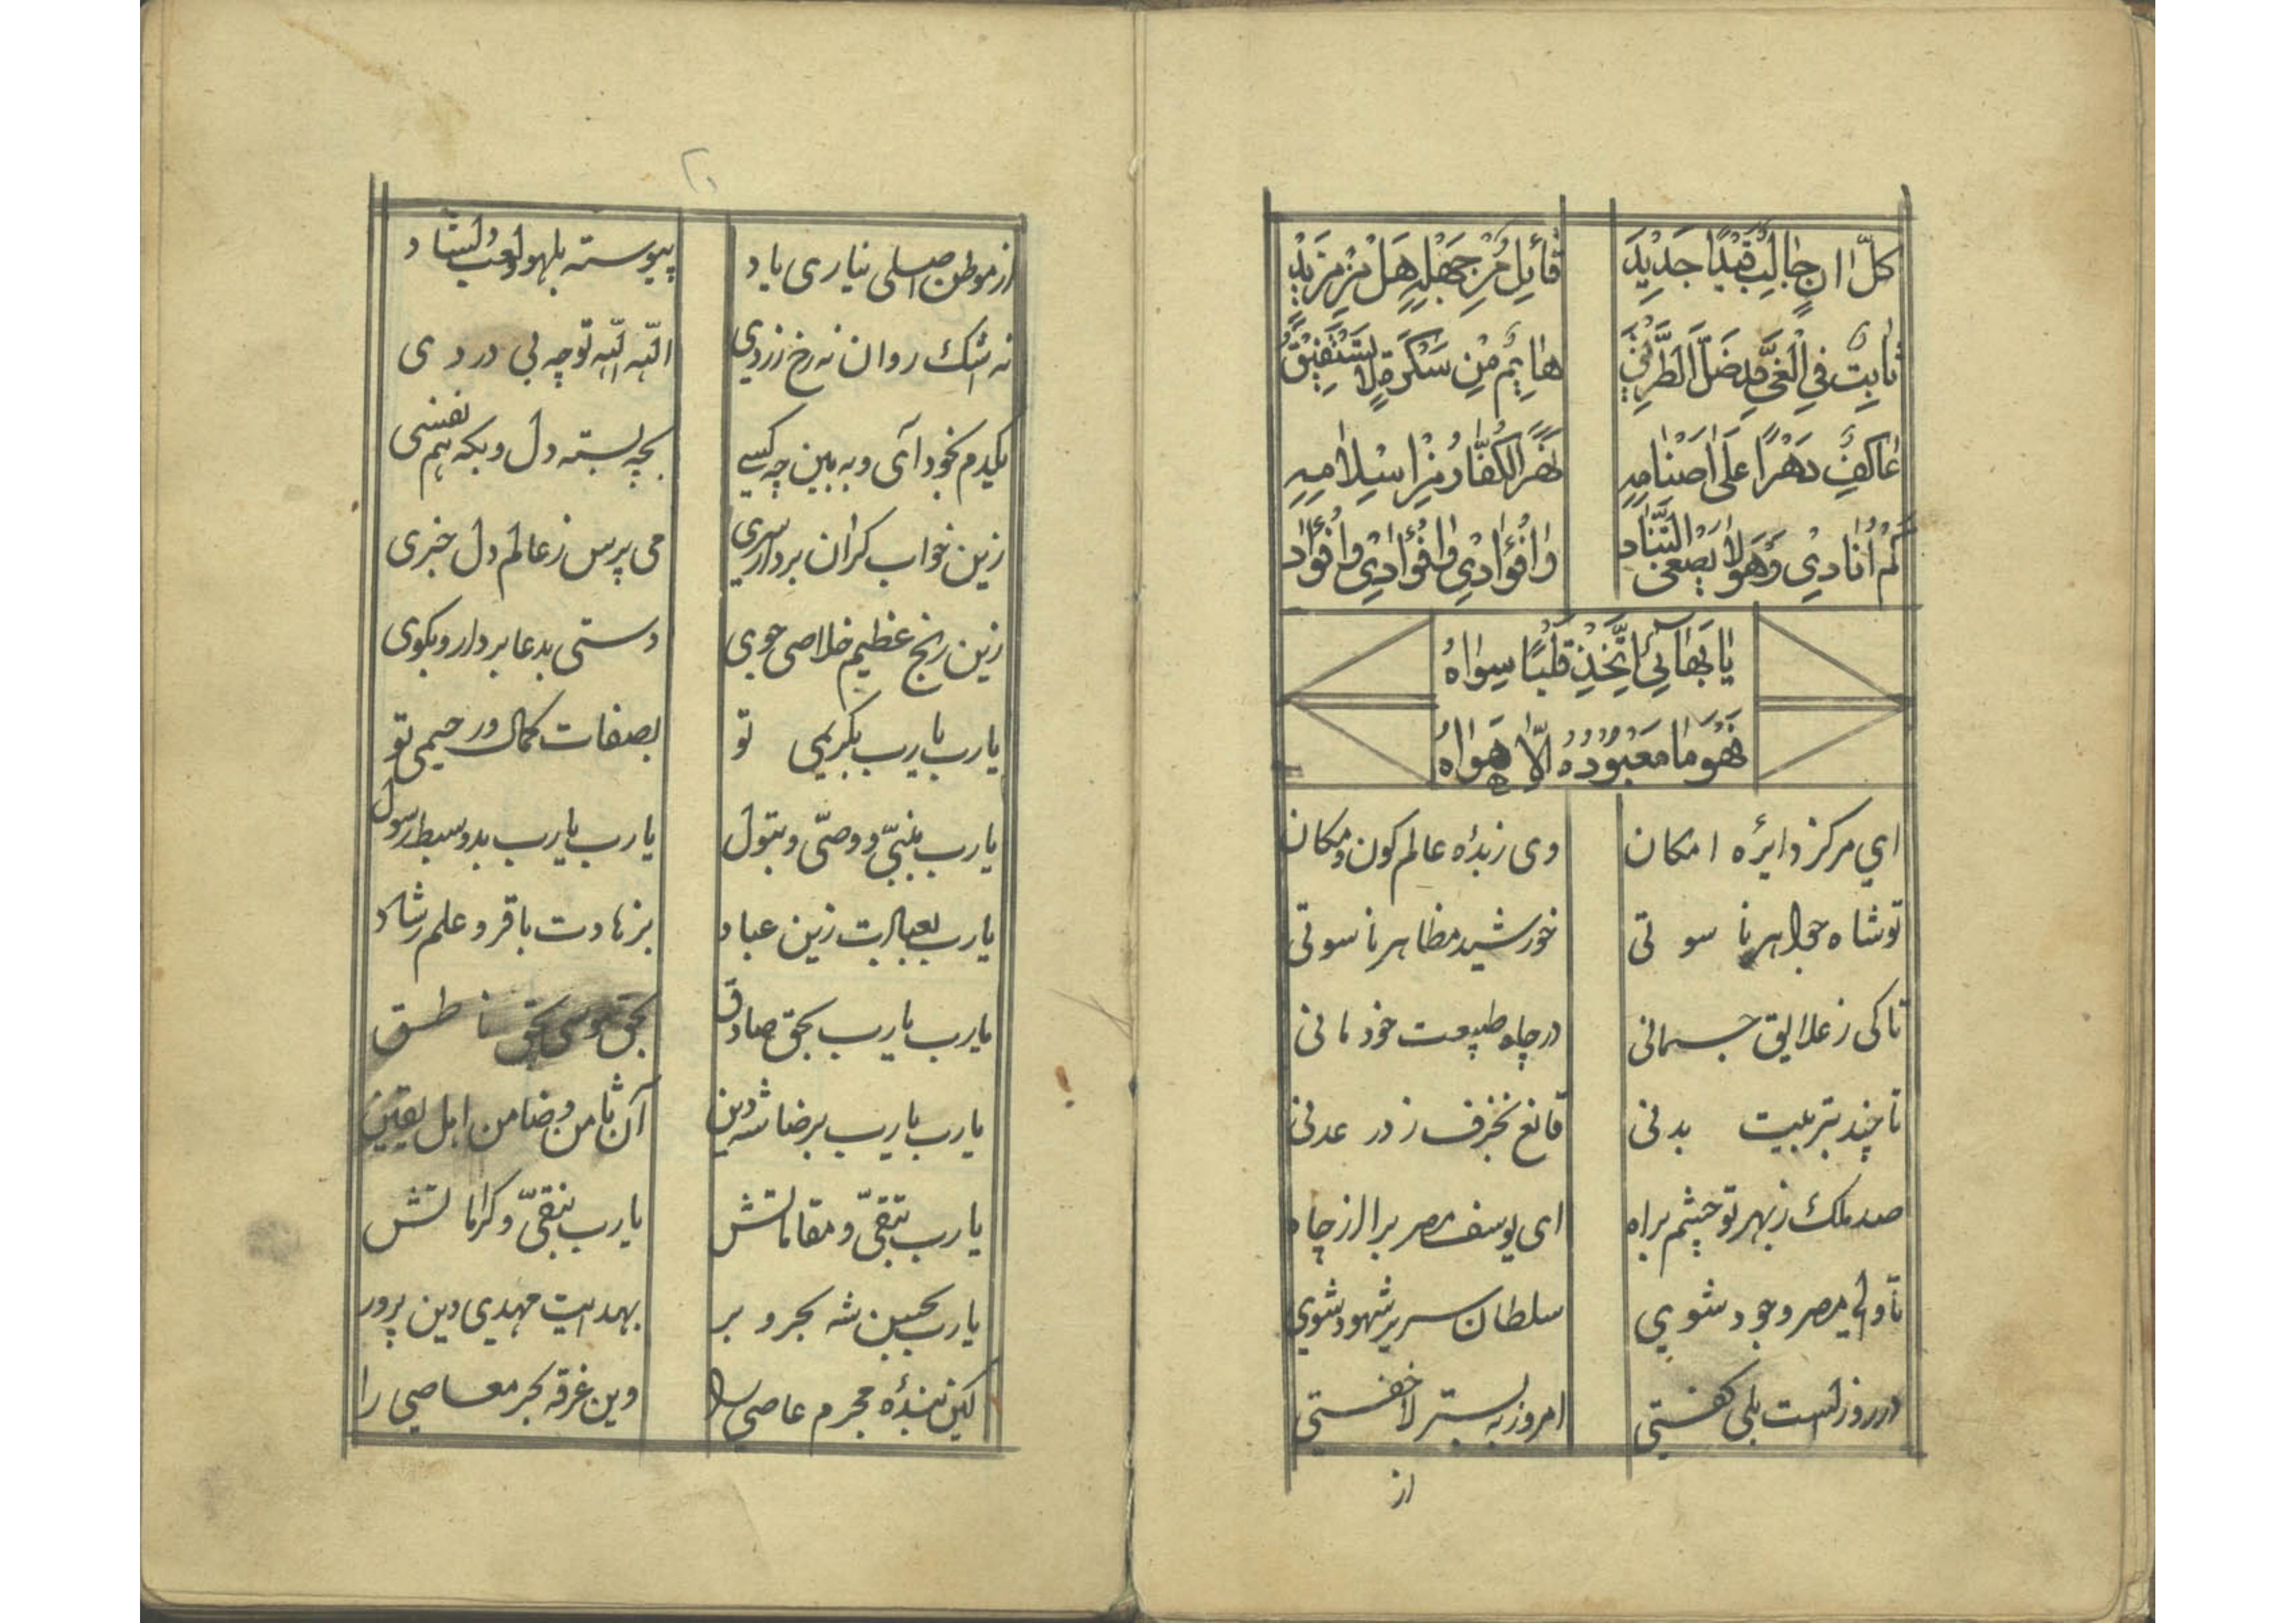 كلّ اٰان جٰالِب قَيْدًا جَدِيْدَ قٰائِل مِنْ جَهْلِهٖ هَلْ مِنْ مَزِيْدٍ
ثابِت فِي الْغَيِّ قَد ضَلَّ الطَّرِيْق هٰايِمٌ مِنْ سَكْرَةٍ لا يَسْتَفِيْق
عٰاكِف دَهْرًا عَلَىٰ اَصْنٰامِهٖ نَفَّرَ الكُفّٰار مِنْ اِسْلٰامِهٖ
كَمْ اُنٰادِي وَهُوَ لٰا يَصْغىٰ التَّنٰاد وٰا فُؤٰادِي وٰا فُؤٰادِي وٰا فُؤٰاد
يٰا بَهٰائِي اِتَّخِذْ قَلْبًا سِوٰاهُ
فَهُوَ مٰا مَعْبُوْدُهُ اِلّٰا هَوٰاهُ
اي مركز دايرهٔ امكان وى زبدهٔ عالم كون و مكان
تو شاه جواهر نا سو تى خورشيد مظاهر نا سوتى
تا كى ز علايق جسمانى در چاه طبيعت خود مانى
تا چند بتربيت بدنى قانع بخزف ز در عدنى
صد ملك ز بهر تو چشم براه اى يوسف مصر برا از چاه
تا والي مصر وجود شوي سلطان سرير شهود شوي
در روز الست بلى گفتى امروز به بستر لا خفتى
از
از موطن اصلى نيارى ياد پيوسته بلهو و لعب دلشاد
نه اشك روان نه رخ زردي اللّه اللّه تو چه بى دردى
يكدم بخود آى و به بين چه كسى بچه بسته دل و بكه هم نفسى
زين خواب گران بردار سرى مى پرس ز عالم دل خبرى
زين رنج عظيم خلاصى جوى دستى بدعا بردار و بگوى
يا رب يا رب بكريمى تو بصفات كمال و رحيمى تو
يا رب بنبىّ و وصىّ و بتول يا رب يا رب بدو سبط رسول
يا رب بعبادت زين عباد بزهادت باقر و علم رشاد
يا رب يا رب بحق صادق بحق موسى بحق ناطق
يا رب يا رب برضا شه دين آن ثامن و ضامن اهل يقين
يا رب بتقىّ و مقاماتش يا رب بنقىّ و كراماتش
يا رب بحسن شه بحر و بر بهدايت مهدي دين پرور
كين بندهٔ مجرم عاصي را وين غرقه بحر معاصي را